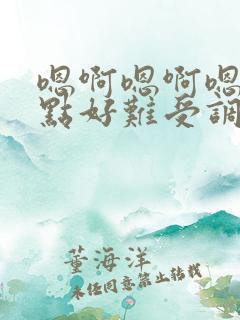 嗯啊嗯啊嗯
點好難受調
董海洋
未经同意禁止转载